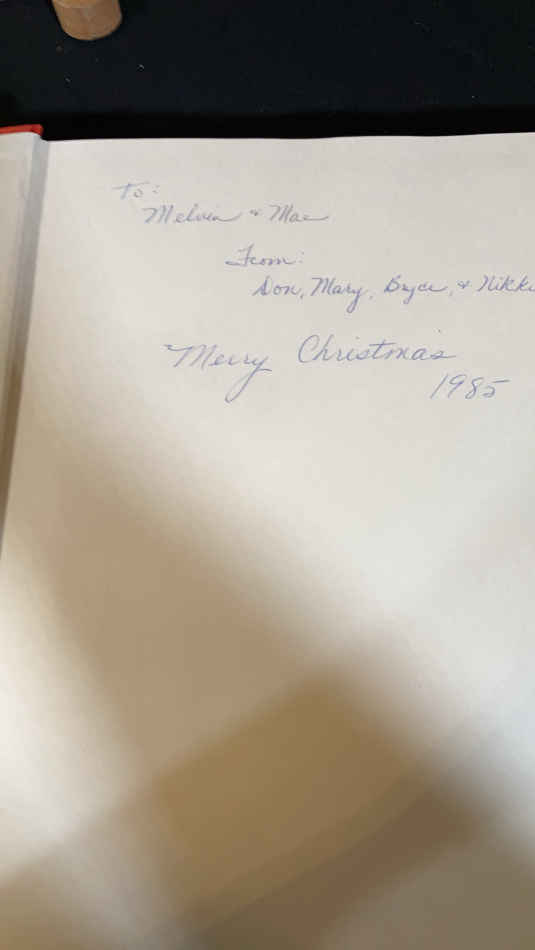 To:
Melvin & Mae
From:
Don, Mary, Bryce, & Nikki
Merry Christmas
1985